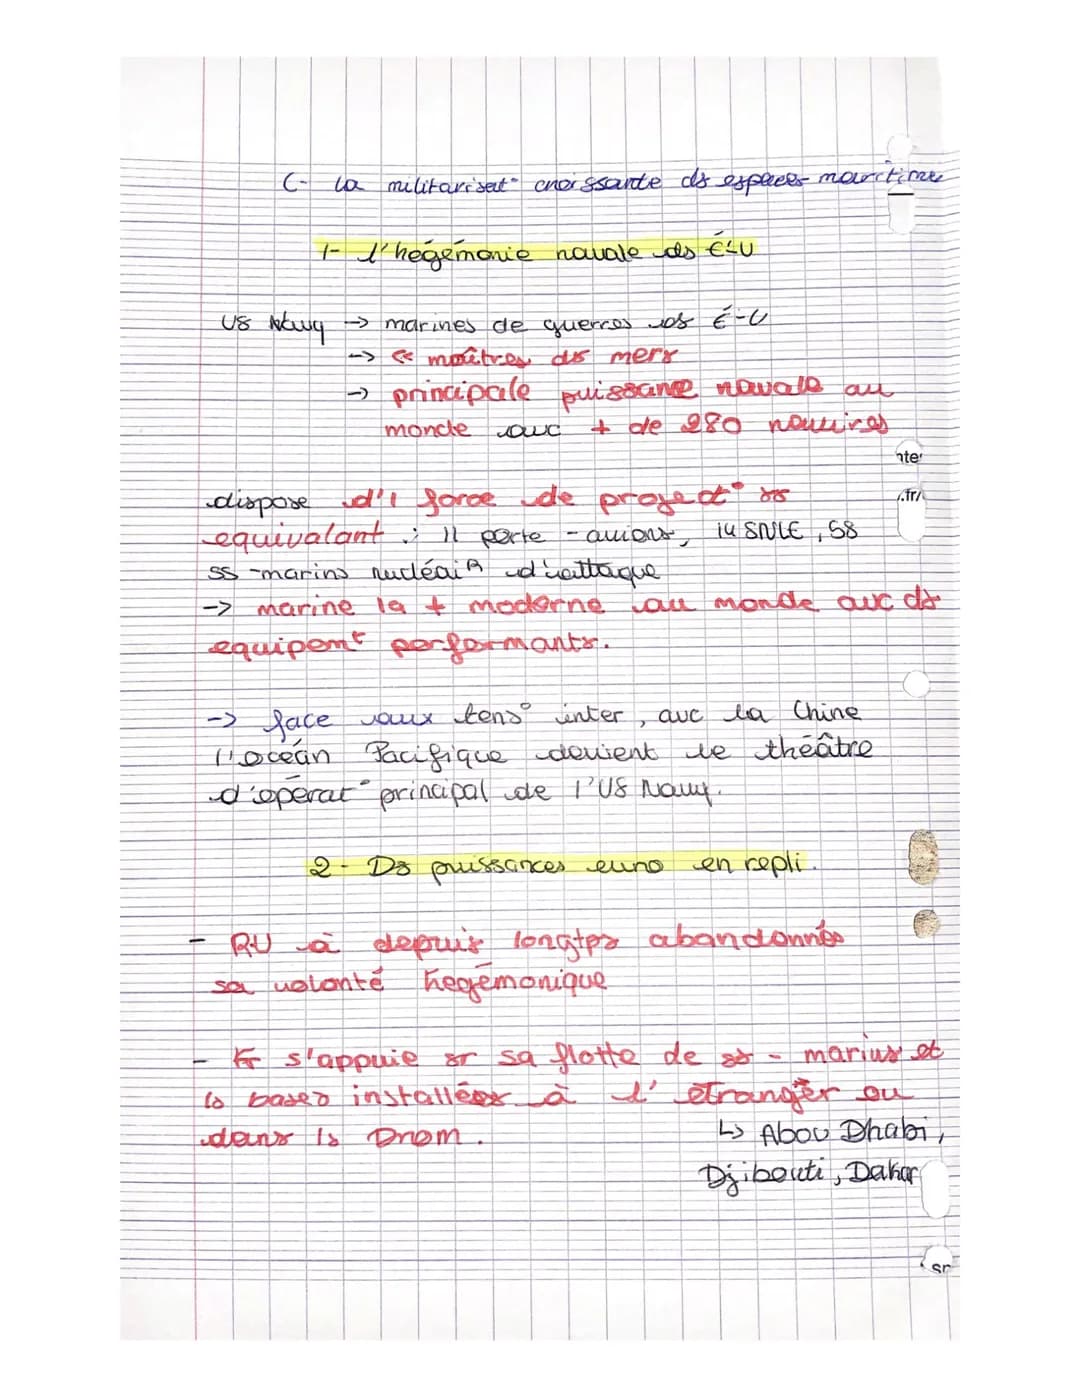 C- La militarisat° croissante ds espaces maritime
1- l'hégémonie navale ds É-U
US Navy → marines de guerres ds É-U
→ « maîtres ds mers
→ principale puissance navale au
monde avc + de 280 navires
nter
.fr/
dispose d'1 force de project° ss
equivalant : 11 porte - avions, 14 SNLE, 58
ss-marins nucléair d'attaque
→ marine la + moderne au monde avc ds
equipemt performants.
→ face aux tens° inter, avc la Chine
l'océan Pacifique devient le théâtre
d'opérat° principal de l'US Navy.
2- Ds puissances euro en repli.
- RU à depuis longtps abandonnés
sa volonté hegémonique
- Fr s'appuie sr sa flotte de ss - marins et
ls bases installées à l'étranger ou
dans ls Drom.
↳ Abou Dhabi,
Djibouti, Dakar
sr